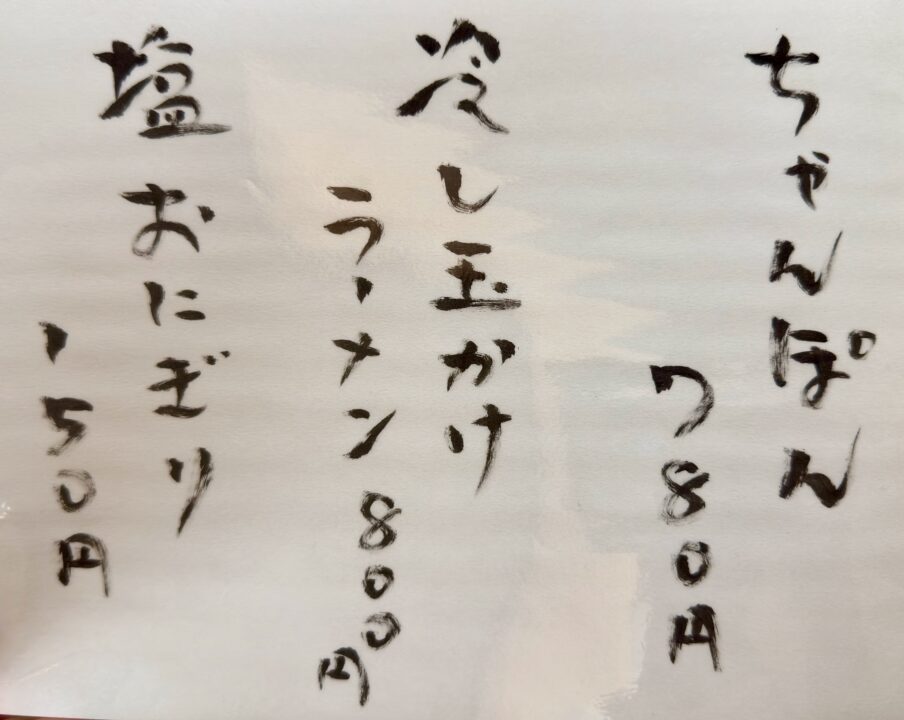 ちゃんぽん
780円
冷し玉かけ
ラーメン800円
塩おにぎり
150円